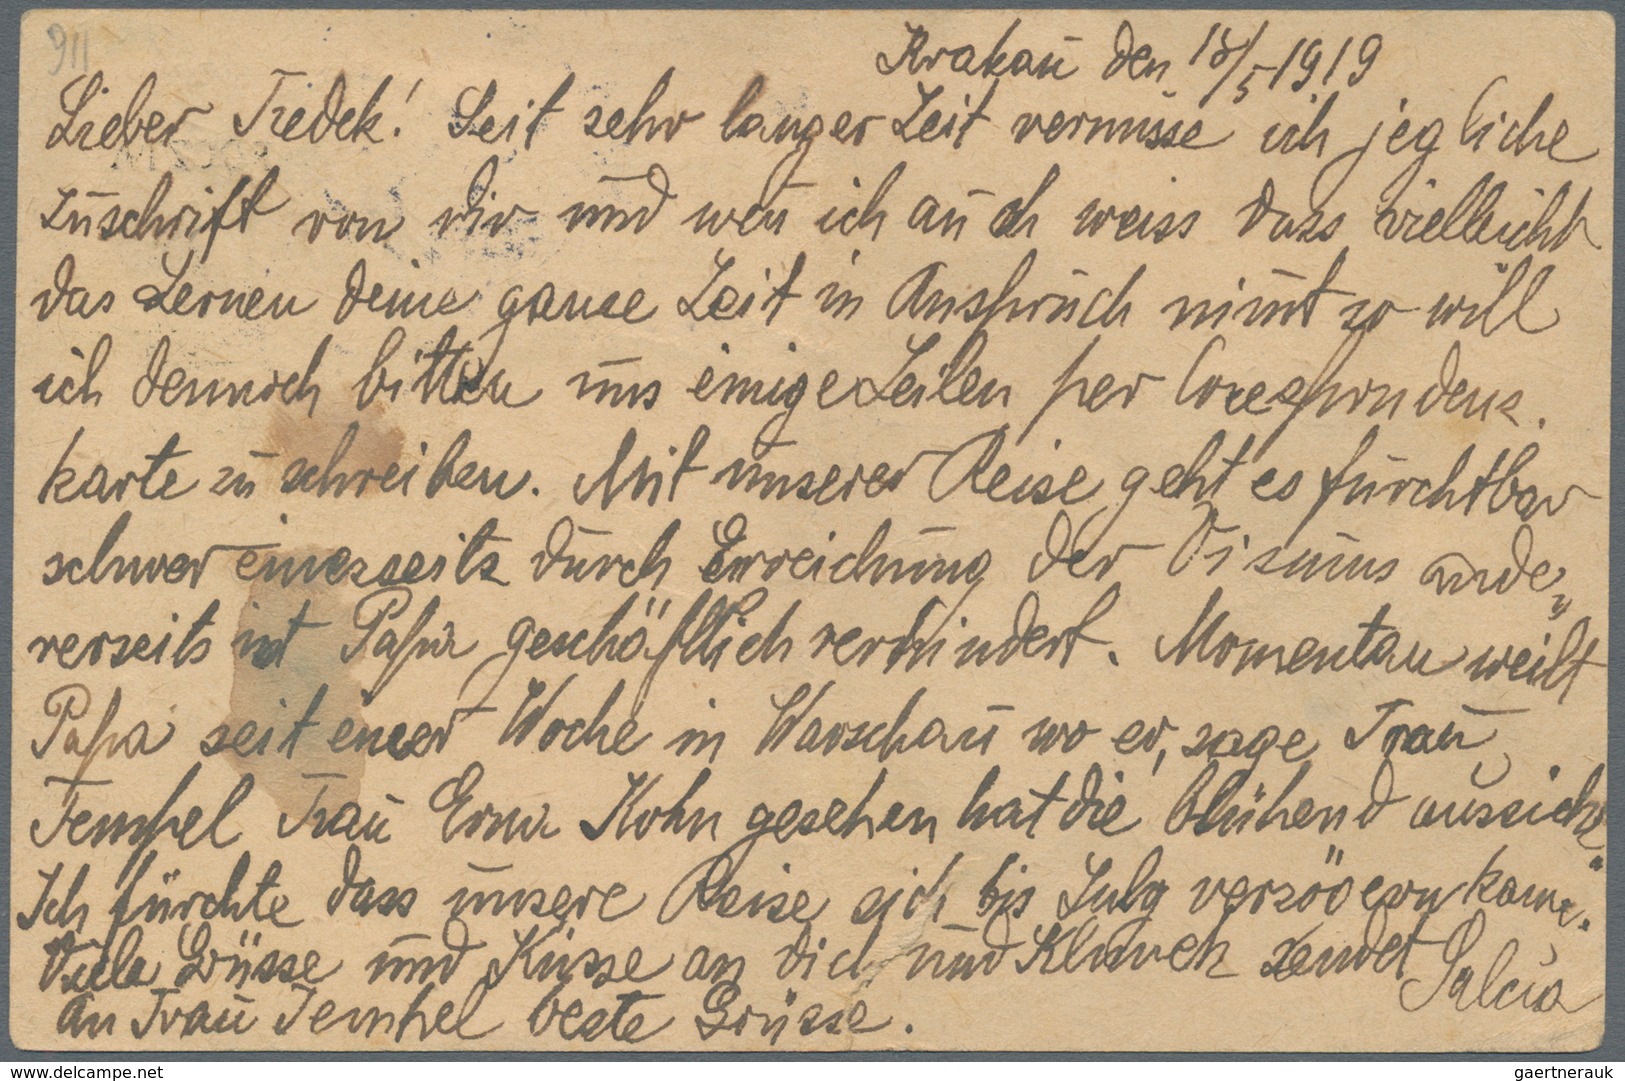 911
Krakau den 18/5 1919
Lieber Fredek! Seit sehr langer Zeit vermisse ich jegliche
Zuschrift von dir und wen̄ ich auch weiss dass vielleicht
das Lernen deine ganze Zeit in Anspruch nim̄t so will
ich dennoch bitten uns einige Zeilen per Corespondenz-
karte zu schreiben. Mit unserer Reise geht es furchtbar
schwer einesseits durch Erreichung der Visums ande„
rerseits ist Papa geschäftlich verhindert. Momentan weilt
Papa seit einer Woche in Warschau wo er, sage Frau
Tempel Frau Erna Kohn gesehen hat die blühend aussieht.
Ich fürchte dass unsere Reise sich bis July verzögern kann.
Viele Grüsse und Küsse an dich und sendet Salcia
an Frau Tempel beste Grüsse.
www.delcampe.net
gaertnerauk